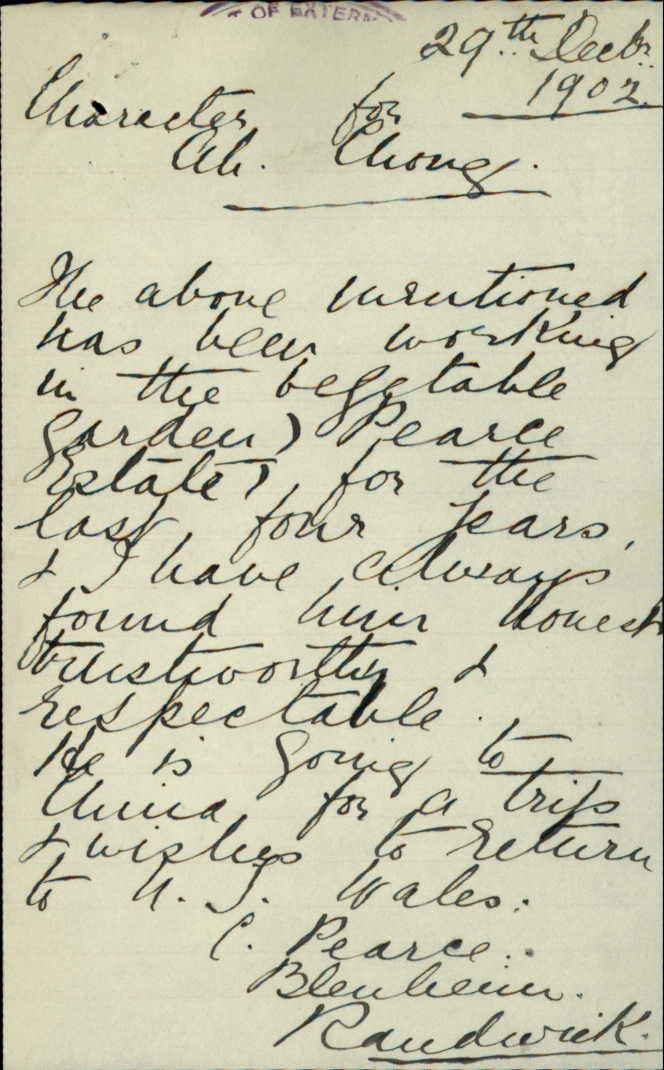 OF EXTERN
29th Decbr.
1902.
Character for
Ah. Chong.
The above mentioned
has been working
in the vegetable
garden, Pearce
Estate, for the
last four years,
& I have always
found him honest
trustworthy &
respectable.
He is going to
China for a trip
& wishes to return
to N. S. Wales.
C. Pearce.
Blenheim.
Randwick.